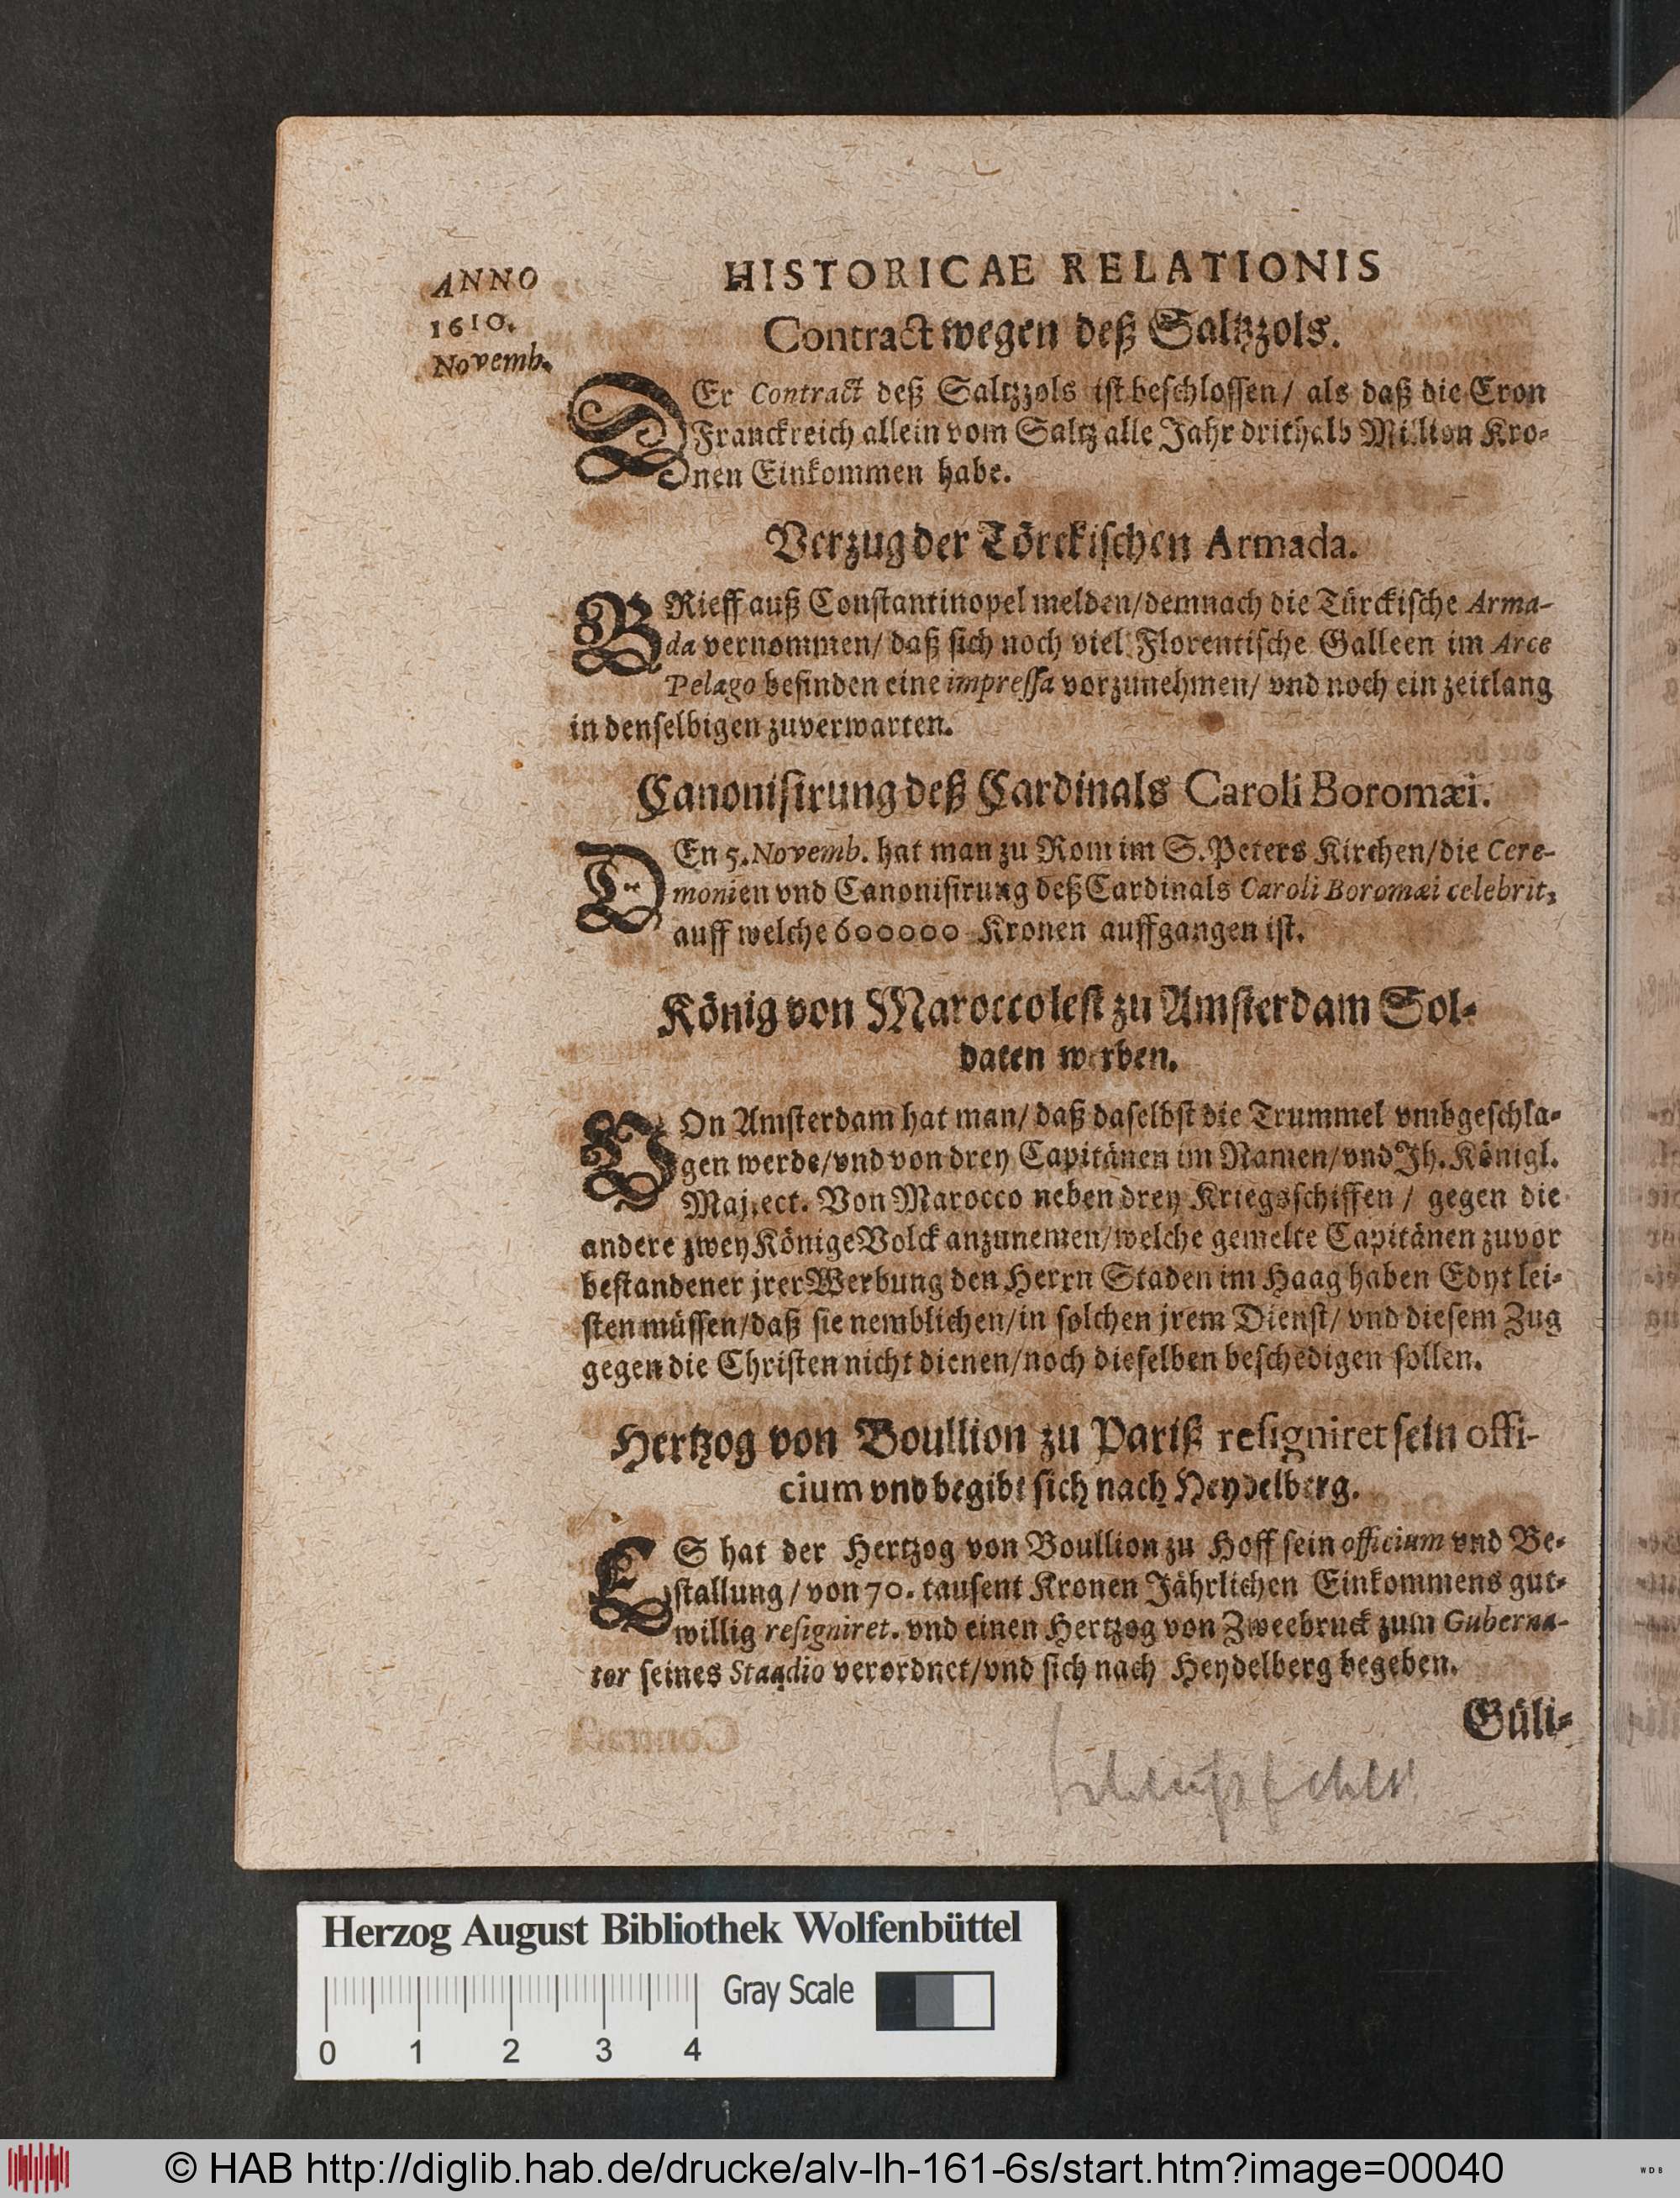 ANNO
1610.
Novemb.
HISTORICAE RELATIONIS
Contract wegen deß Saltzzols.
DEr Contract deß Saltzzols ist beschlossen / als daß die Cron
Franckreich allein vom Saltz alle Jahr drithalb Million Kro-
nen Einkommen habe.
Verzug der Törckischen Armada.
BRieff auß Constantinopel melden / demnach die Türckische Arma-
da vernommen / daß sich noch viel Florentische Galleen im Arce
Pelago befinden eine impressa vorzunehmen / vnd noch ein zeitlang
in denselbigen zuverwarten.
Canonisirung deß Cardinals Caroli Boromæi.
DEn 5. Novemb. hat man zu Rom im S. Peters Kirchen / die Cere-
monien vnd Canonisirung deß Cardinals Caroli Boromæi celebrit,
auff welche 600000 Kronen auffgangen ist.
König von Marocco lest zu Amsterdam Sol-
daten werben.
VOn Amsterdam hat man / daß daselbst die Trummel vmbgeschla-
gen werde / vnd von drey Capitänen im Namen / vnd Jh. Königl.
Maj. ect. Von Marocco neben drey Kriegsschiffen / gegen die
andere zwey Könige Volck anzunemen / welche gemelte Capitänen zuvor
bestandener jrer Werbung den Herrn Staden im Haag haben Edyt lei-
sten müssen / daß sie nemblichen / in solchen jrem Dienst / vnd diesem Zug
gegen die Christen nicht dienen / noch dieselben beschedigen sollen.
Hertzog von Boullion zu Pariß resigniret sein offi-
cium vnd begibt sich nach Heydelberg.
ES hat der Hertzog von Boullion zu Hoff sein officium vnd Be-
stallung / von 70. tausent Kronen Jährlichen Einkommens gut-
willig resigniret. vnd einen Hertzog von Zweebruck zum Guberna-
tor seines Staadio verordnet / vnd sich nach Heydelberg begeben.
Güli-
Herzog August Bibliothek Wolfenbüttel
Gray Scale
0 1 2 3 4
© HAB http://diglib.hab.de/drucke/alv-lh-161-6s/start.htm?image=00040